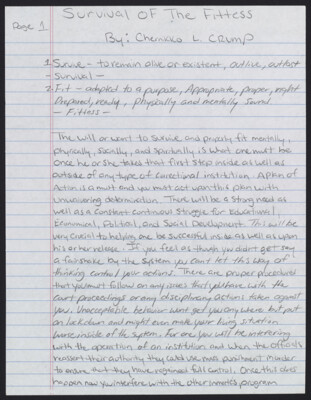 Page 1
Survival of The Fittess
By: Cherniako L. CRUMP
1. Survive - to remain alive or existent, outlive, outlast
- Survival -
2. Fit - adapted to a purpose, Appropriate, proper, right
Prepared, ready, Physically and mentally Sound.
- Fittess -
The will or want to Survive and properly fit mentally,
physically, socially, and spiritually is what one must be
once he or she takes that first step inside as well as
outside of any type of correctional institution. A plan of
Action is a must and you must act upon this plan with
unwavering determination. There will be a strong need as
well as a constant continuous Struggle for Educational,
Economical, Political, and Social Development. This will be
very crucial to helping one be successful inside as well as upon
his or her release. If you feel as though you didn't get
a fair shake by the System you can't let this way of
thinking control your actions. There are proper procedures
that you must follow on any issues that you have with the
court proceedings or any disciplinary actions taken against
you. Unacceptable behavior wont get you any where but put
on lockdown and might even make your living situation
worse inside of the system. For one you will be interfering
with the operation of an institution and when the officials
reassert their authority they will use more punishment in order
to ensure that they have regained full control. Once this does
happen now you interfere with the other inmates program